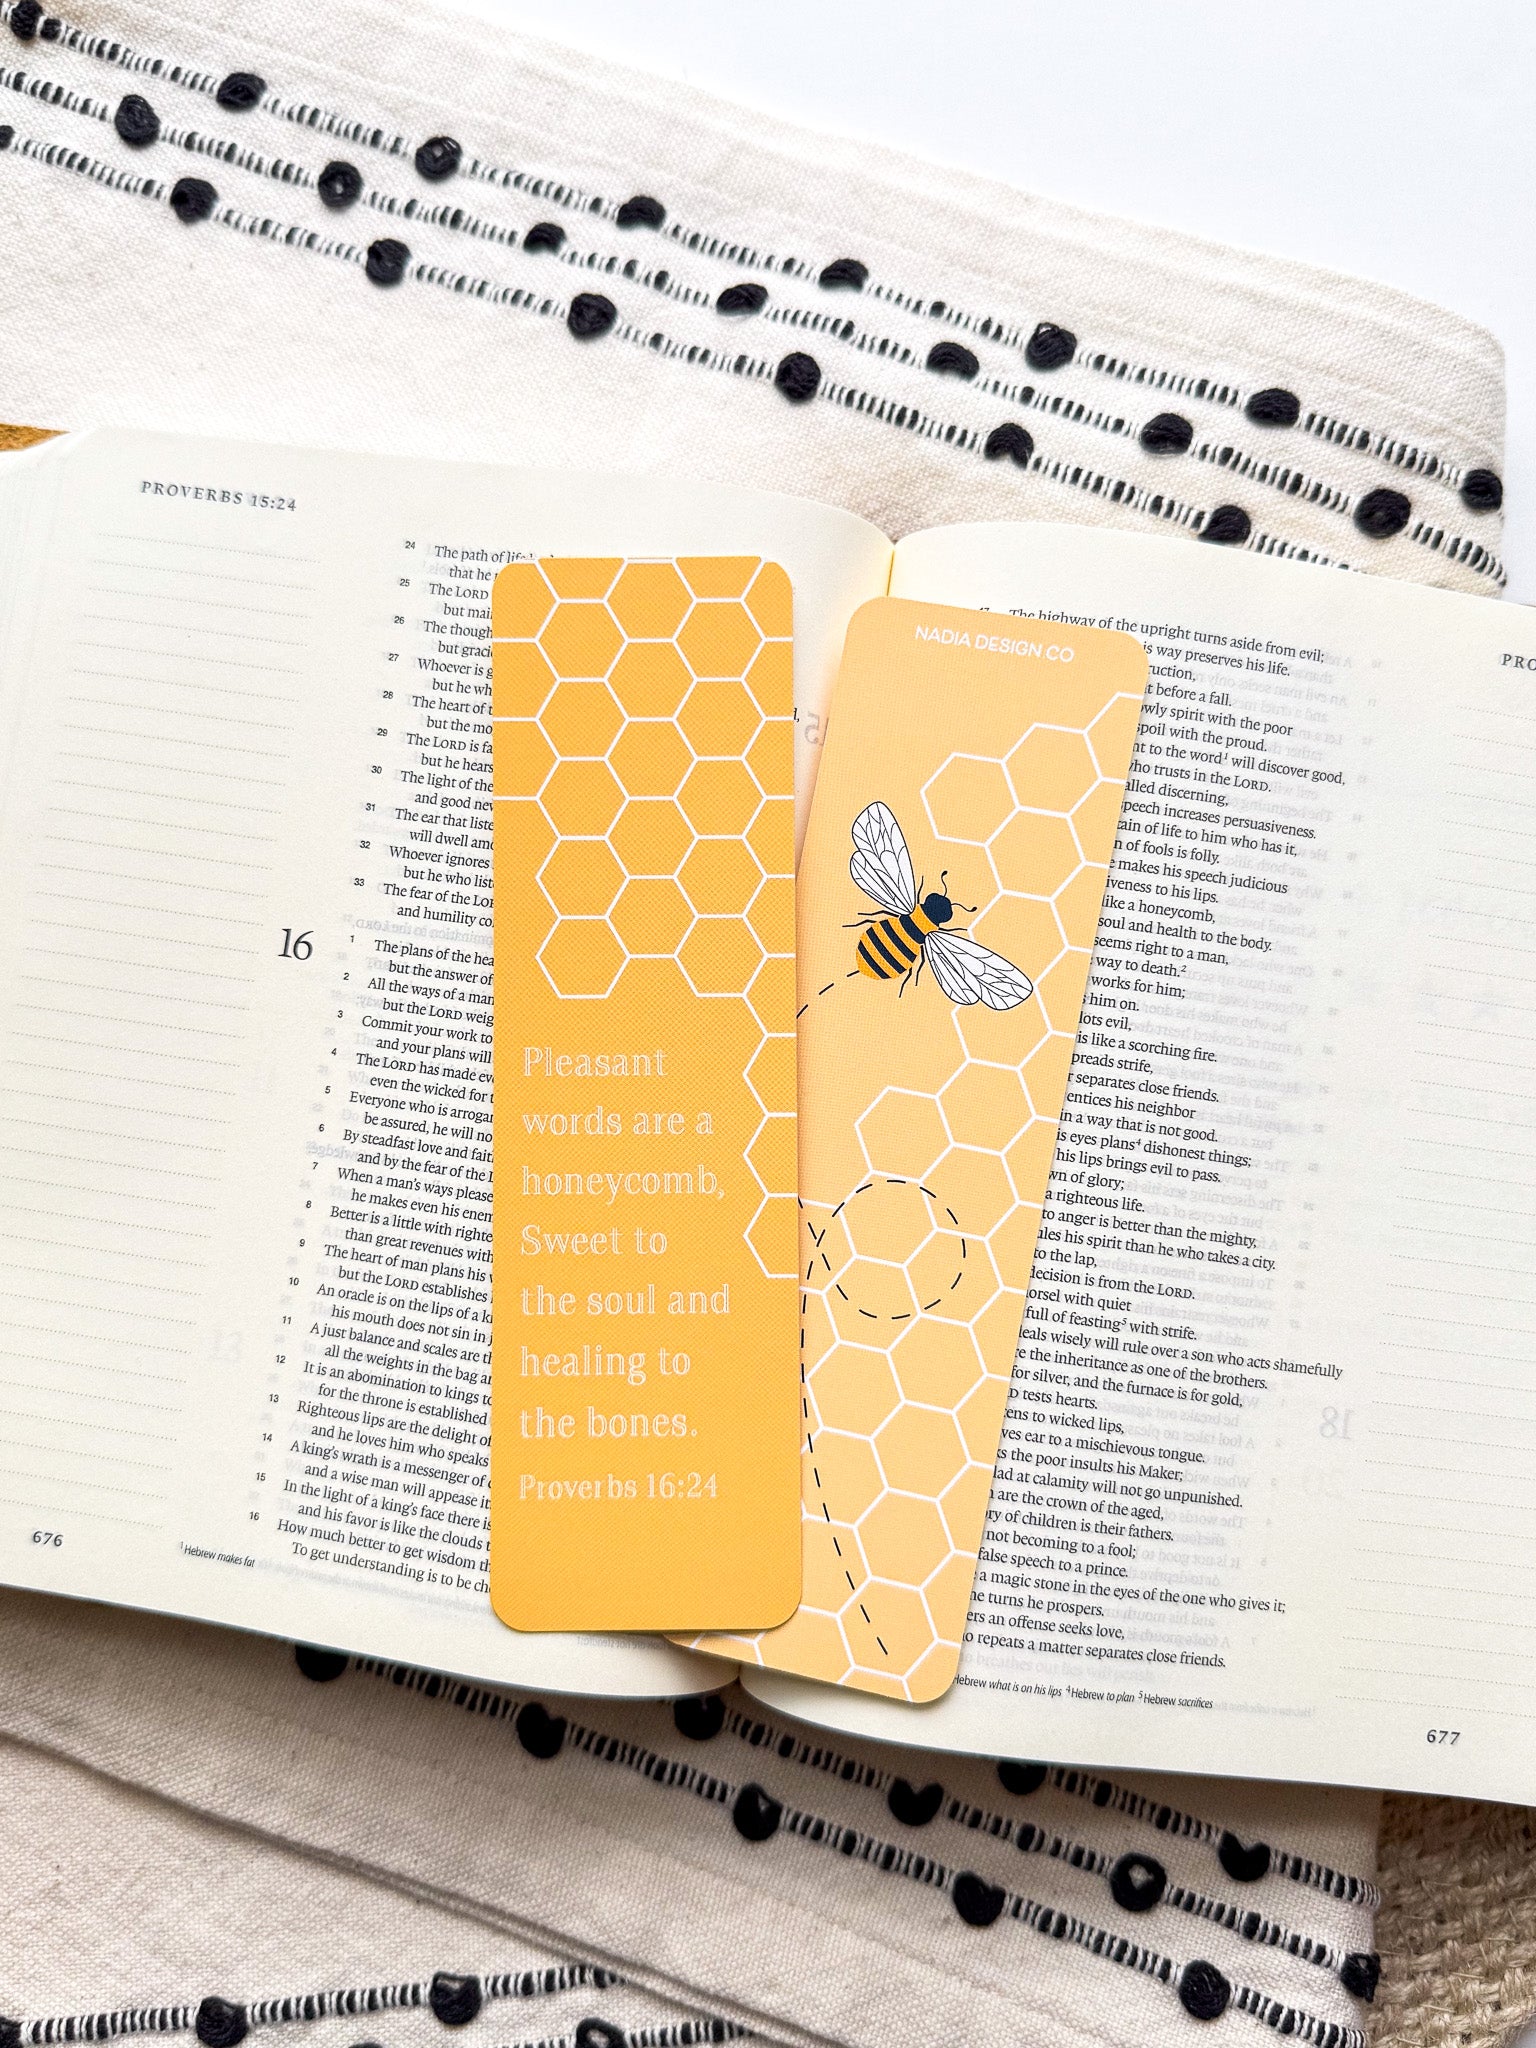 PROVERBS 15:24
24 The path of life
that he
25 The LORD
but mai
26 The though
but graci
27 Whoever is g
but he wh
28 The heart of t
but the mo
29 The LORD is fa
but he hears
30 The light of the
and good nev
31 The ear that liste
will dwell amo
32 Whoever ignores
but he who list
33 The fear of the LOR
and humility co
16
1 The plans of the hea
but the answer of
2 All the ways of a man
but the LORD weig
3 Commit your work to
and your plans will
4 The LORD has made eve
even the wicked for t
5 Everyone who is arrogan
be assured, he will no
6 By steadfast love and fait
and by the fear of the L
7 When a man's ways please
he makes even his enem
8 Better is a little with righte
than great revenues with
9 The heart of man plans his w
but the LORD establishes
10 An oracle is on the lips of a k
his mouth does not sin in j
11 A just balance and scales are th
all the weights in the bag ar
12 It is an abomination to kings to
for the throne is established
13 Righteous lips are the delight of
and he loves him who speaks
14 A king's wrath is a messenger of d
and a wise man will appease it
15 In the light of a king's face there is
and his favor is like the clouds t
16 How much better to get wisdom th
To get understanding is to be cho
1 Hebrew makes fat
676
Pleasant
words are a
honeycomb,
Sweet to
the soul and
healing to
the bones.
Proverbs 16:24
NADIA DESIGN CO
PRO
17 The highway of the upright turns aside from evil;
is way preserves his life.
ruction,
t before a fall.
owly spirit with the poor
spoil with the proud.
nt to the word1 will discover good,
who trusts in the LORD.
alled discerning,
speech increases persuasiveness.
tain of life to him who has it,
n of fools is folly.
e makes his speech judicious
iveness to his lips.
like a honeycomb,
soul and health to the body.
seems right to a man,
way to death.2
works for him;
s him on.
lots evil,
is like a scorching fire.
preads strife,
r separates close friends.
entices his neighbor
in a way that is not good.
is eyes plans4 dishonest things;
his lips brings evil to pass.
wn of glory;
a righteous life.
to anger is better than the mighty,
ules his spirit than he who takes a city.
to the lap,
decision is from the LORD.
orsel with quiet
full of feasting5 with strife.
eals wisely will rule over a son who acts shamefully
re the inheritance as one of the brothers.
for silver, and the furnace is for gold,
D tests hearts.
ens to wicked lips,
ves ear to a mischievous tongue.
ks the poor insults his Maker;
lad at calamity will not go unpunished.
are the crown of the aged,
ry of children is their fathers.
not becoming to a fool;
false speech to a prince.
a magic stone in the eyes of the one who gives it;
ne turns he prospers.
ers an offense seeks love,
o repeats a matter separates close friends.
Hebrew what is on his lips 4 Hebrew to plan 5 Hebrew sacrifices
677